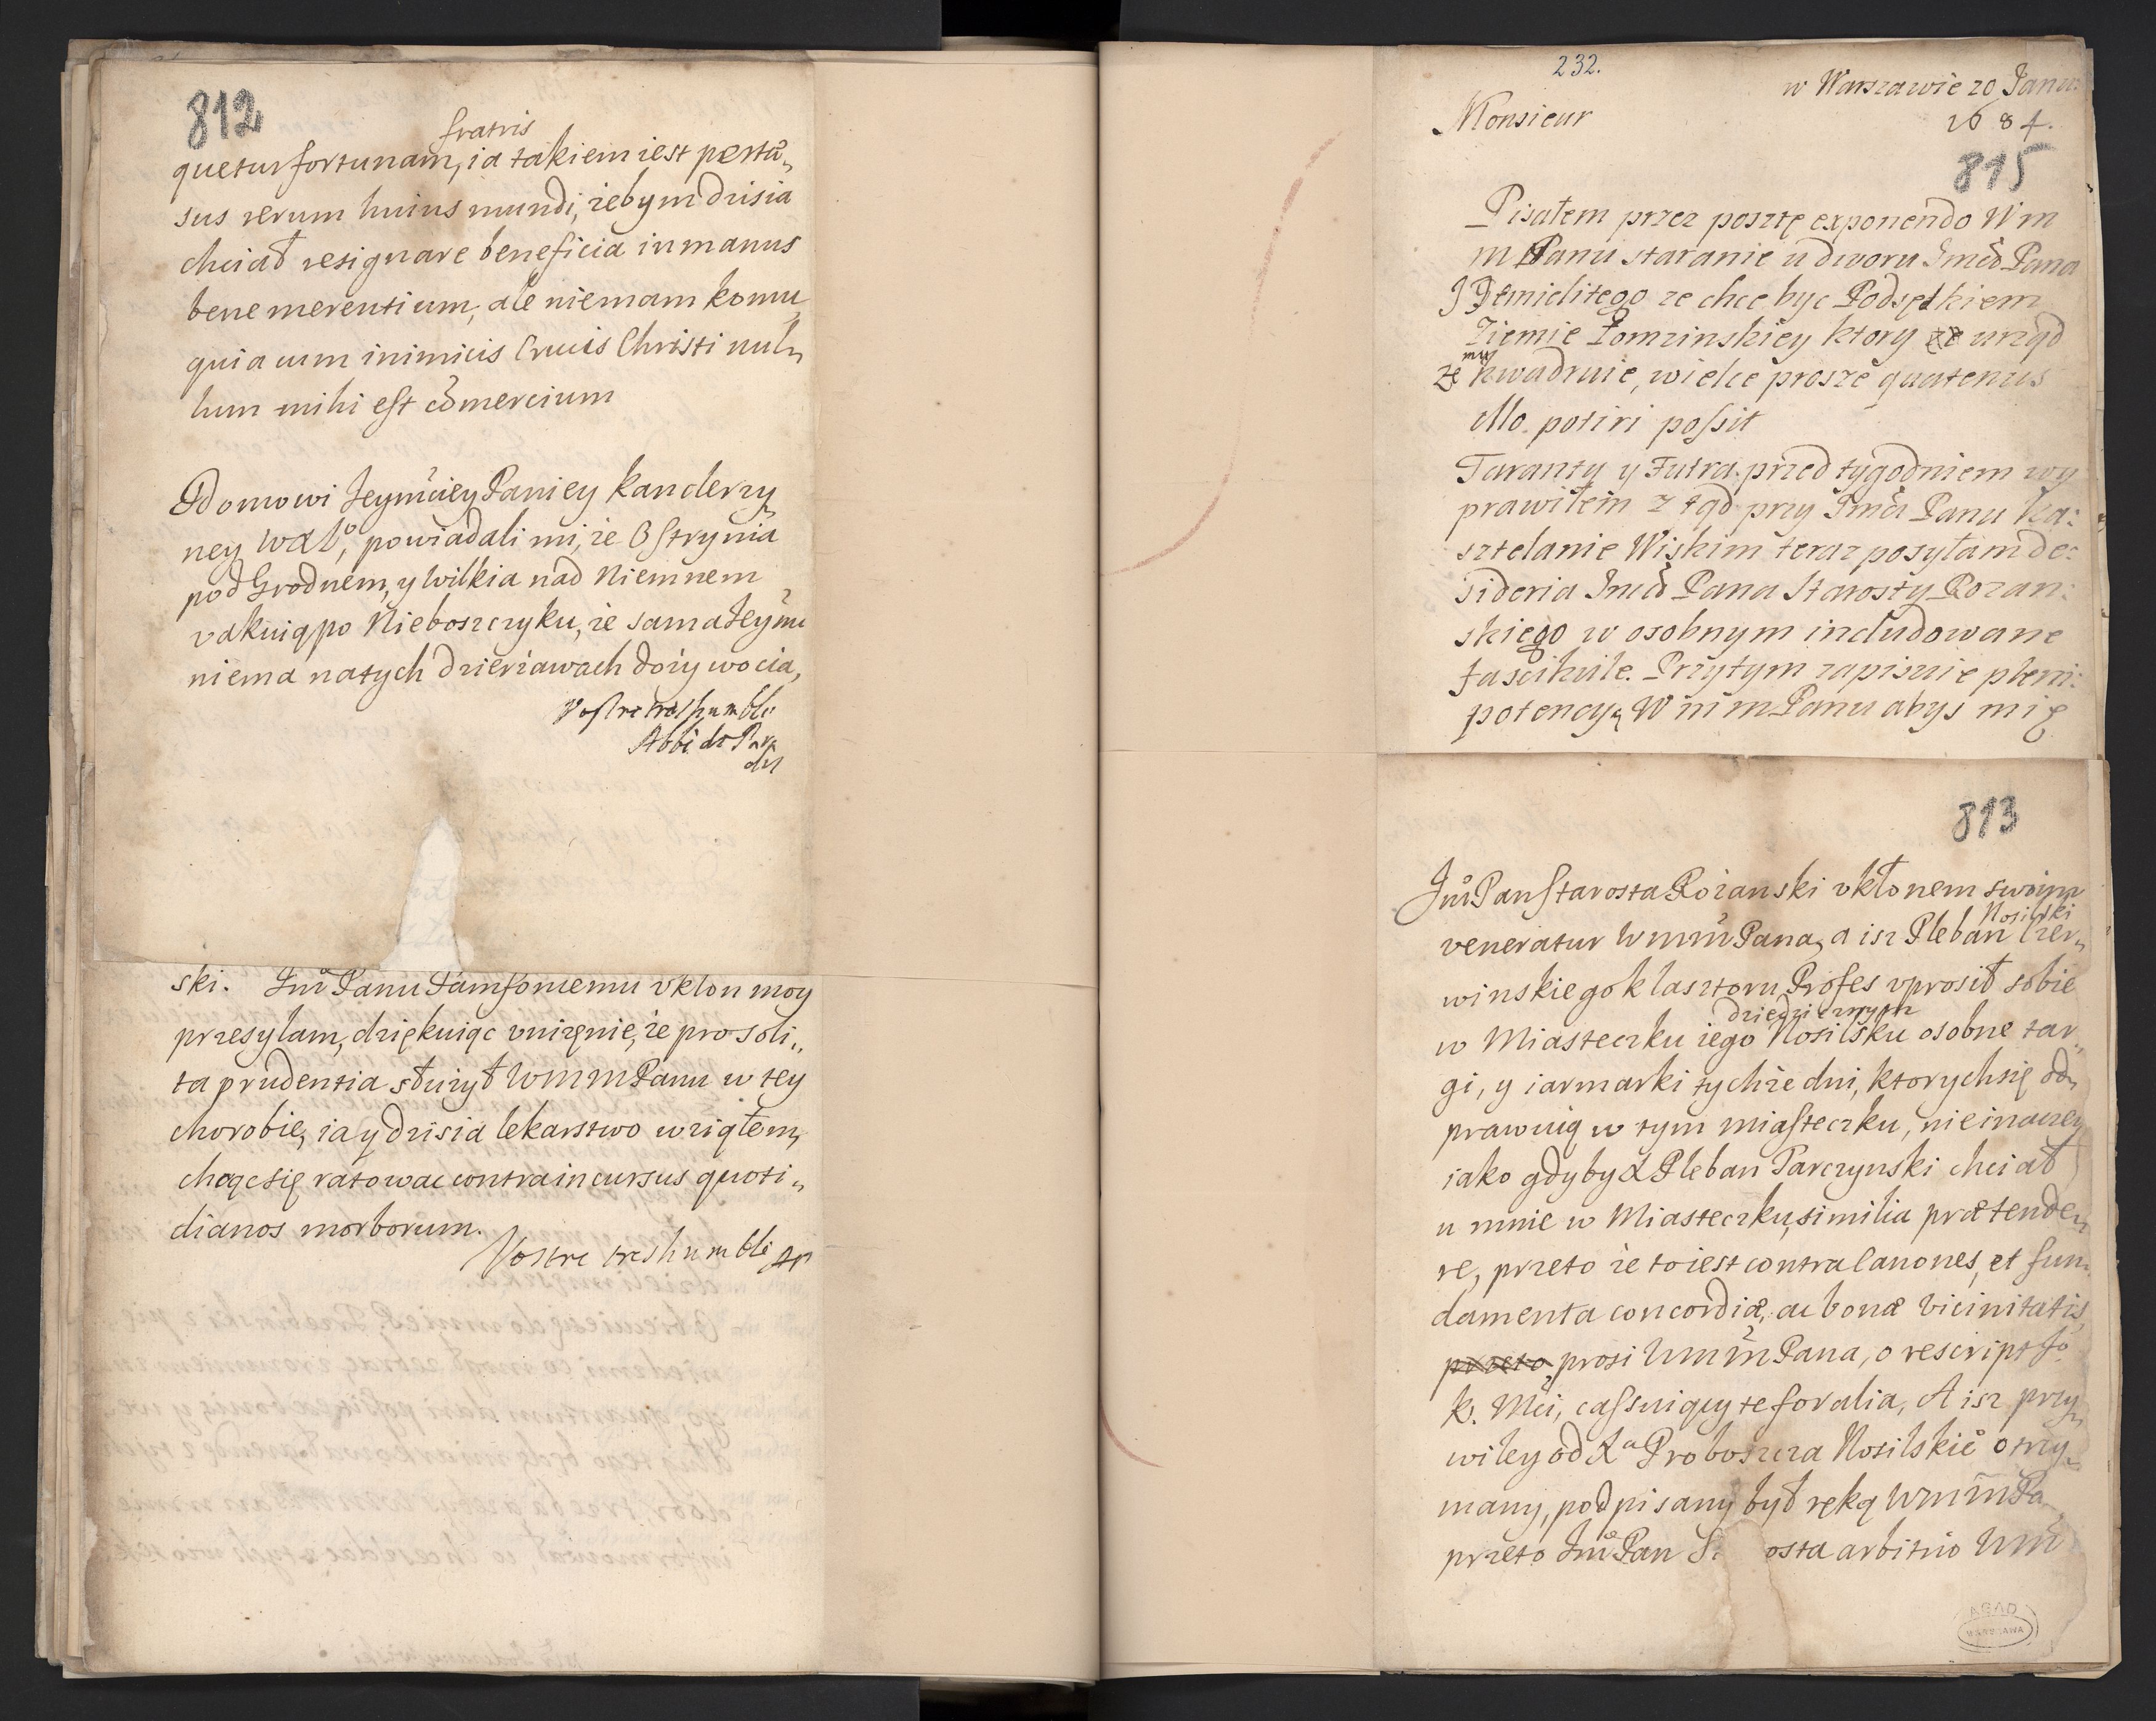 812
fratris
quetur fortunam, ia takiem iest pertæ„
sus rerum huius mundi, zebym dzisia
chciał resignare beneficia in manus
bene merentium, ale niemam komu,
quia cum inimicis Crucis Christi nul„
lum mihi est cōmercium
Odomowi Jeymciey Paniey Kanclerzy„
ney WXL°, powiadali mi, ze Ostrynia
pod Grodnem, y Wilkia nad Niemnem
vakuią po Nieboszczyku, ze sama Jeymc
niema natych dzierżawach dożywocia,
Vostre tres humble
Abbé de
ski. Jm Panu vklon moy
przesylam, dziękuiąc vniżęnie, że pro soli„
ta prudentia służył WMMPanu w tey
chorobie, ia y dzisia lekarstwo wziąłem,
chcącsię ratowac contra incursus quoti„
dianos morborum.
Vostre tres humble
232.
w Warszawie 20 Janu:
1684.
Monsieur
815
Pisałem przez posztę exponendo Wm
m Panu staranie u dworu Jmci Pana
ze chce byc Podsędkiem
Ziemie Łomzinskiey ktory urząd
mu
ze kwadruie, wielce prosze quatenus
illo potiri possit
Taranty y Futra przed tygodniem wy
prawiłem z tąd przy Jmci Panu Ka:
sztelanie Wiskim teraz posyłam de:
sideria Jmci Pana Starosty Rozan:
skiego w osobnym includowane
fascikule. Przytym zapisuie pleni:
potencyą WmmPanu abys mię
813
Jm Pan Starosta Rożanski vkłonem swoim
Nosilski
veneratur WmmPana, a isz Pleban Czer„
winskiego klasztoru Profes vprosił sobie
dziedzicznym
w Miasteczku iego Nosilsku osobne tar„
gi, y iarmarki tychże dni, ktorych się od„
prawuią w tym miasteczku, nieinaczey
iako gdyby X Pleban Parczynski chciał
u mnie w Miasteczku, similia prætende„
re, przeto że to iest contra Canones, et fun„
damenta concordiæ, ac bonæ vicinitatis,
przeto prosi WmmPana, o rescript Jo
K. Mci, cassuiący te foralia, A isz przy„
wiley od Xa Proboszcza Nosilskie° otrzy„
many, podpisany był ręką WmmPa
przeto Jm Pan S osta arbitrio Wm
AGAD
WARSZAWA